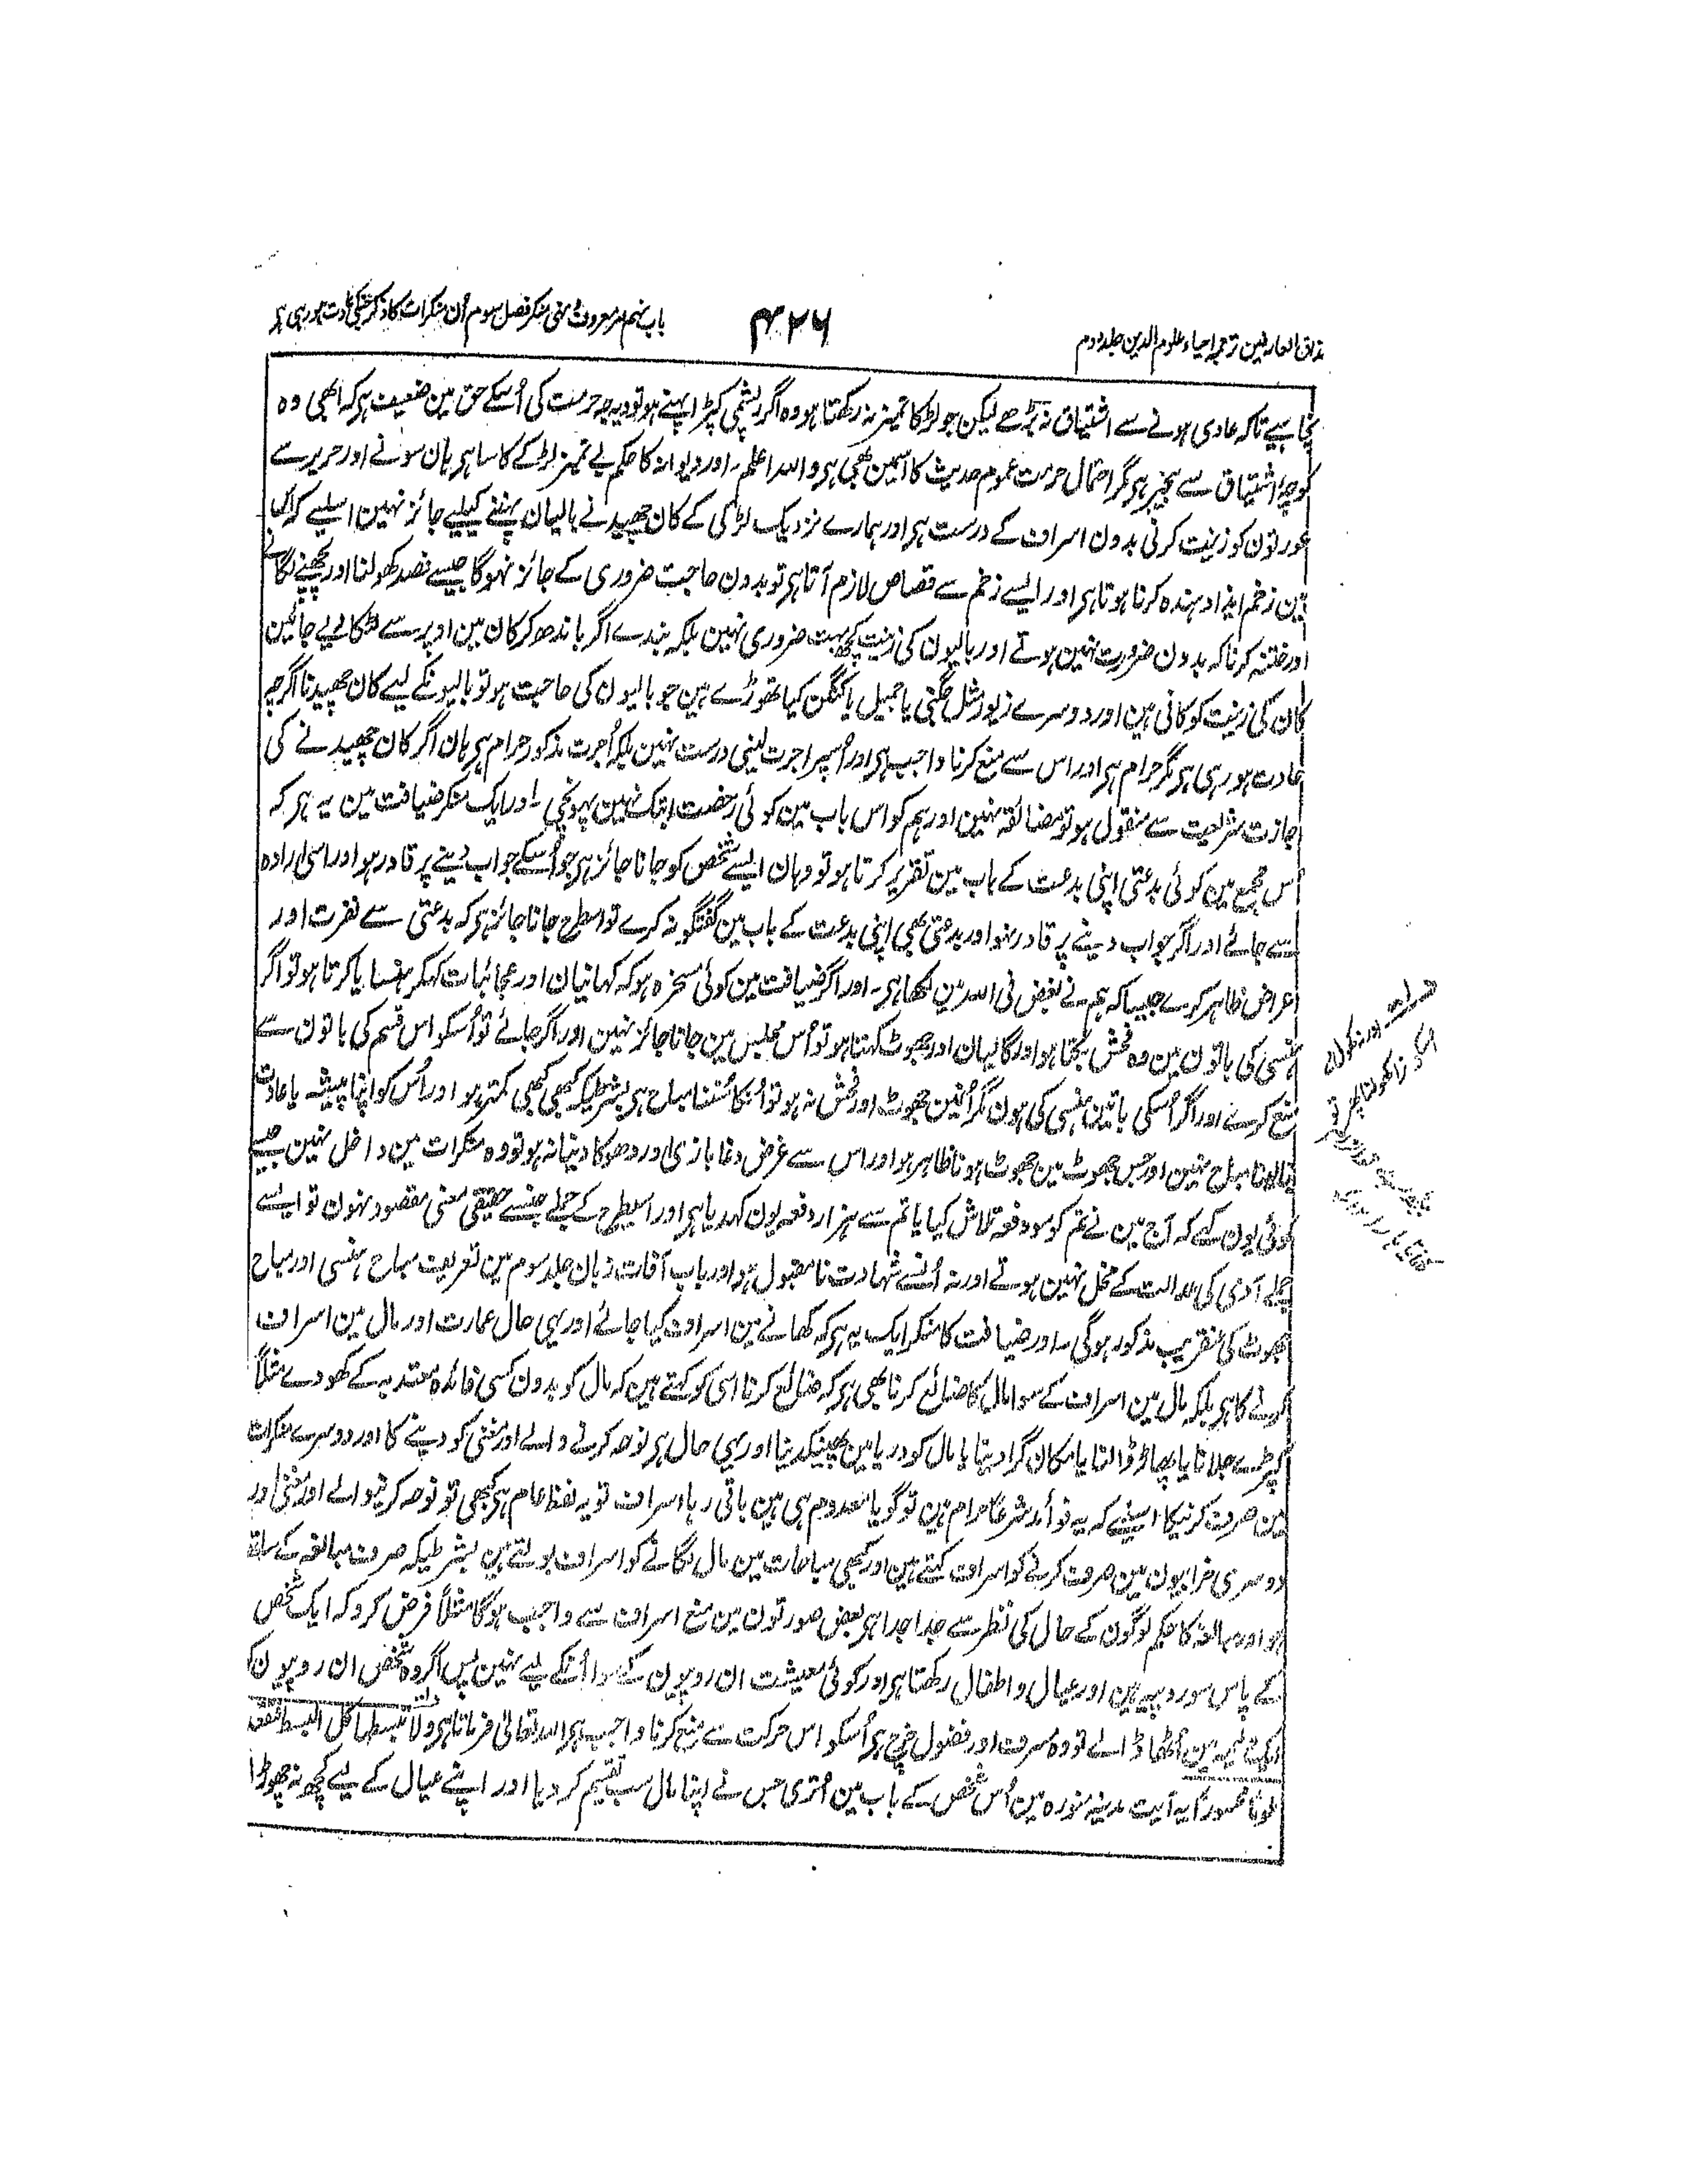 مذاق العارفین ترجمہ احیاء علوم الدین جلد دوم
۴۲۶
باب نہم امر معروف و نہی منکر فصل سوم اُن منکرات کا ذکر جنکی عادت ہو رہی ہر
چاہیے تاکہ عادی ہونے سے اشتیاق نہ بڑھے لیکن جو لڑکا تمیز نہ رکھتا ہو وہ اگر ریشمی کپڑا پہنے ہو تو وجہ حرمت کی اُسکے حق مین ضعیف ہر کہ ابھی وہ
کوچۂ اشتیاق سے بیخبر ہر مگر احتمال حرمت عموم حدیث کا اسمین بھی ہر واللہ اعلم۔ اور دیوانہ کا حکم بے تمیز لڑکے کا سا ہر ہان سونے اور حریر سے
عورتون کو زینت کرنی بدون اسراف کے درست ہر اور ہمارے نزدیک لڑکی کے کان چھیدنے بالیان پہننے کیلیے جائز نہین اسلیے کہ اس
مین زخم ایذا دہندہ کرنا ہوتا ہر اور ایسے زخم سے قصاص لازم آتا ہر تو بدون حاجت ضروری کے جائز نہوگا جیسے فصد کھولنا اور پچھنے لگانے
اور ختنہ کرنا کہ بدون ضرورت نہین ہوتے اور بالیون کی زینت کچھ بہت ضروری نہین بلکہ بندے اگر باندھ کر کان مین اوپر سے لٹکا لیے جائین
کان کی زینت کو کافی ہین اور دوسرے زیور مثل جگنی یا حمیل یا کنگن کیا تھوڑے ہین جو بالیون کی حاجت ہو تو بالیونکے لیے کان چھیدنا اگرچہ
عادت ہو رہی ہر مگر حرام ہر اور اس سے منع کرنا واجب ہر اور اُسپر اجرت لینی درست نہین بلکہ اُجرت مذکور حرام ہر ہان اگر کان چھیدنے کی
اجازت شریعت سے منقول ہو تو مضائقہ نہین اور ہم کو اس باب مین کوئی رخصت ابتک نہین پہونچی۔ اور ایک منکر ضیافت مین یہ ہر کہ
اُس مجمع مین کوئی بدعتی اپنی بدعت کے باب مین تقریر کرتا ہو تو وہان ایسے شخص کو جانا جائز ہر جو اُسکے جواب دینے پر قادر ہو اور اسی ارادہ
سے جائے اور اگر جواب دینے پر قادر نہو اور بدعتی بھی اپنی بدعت کے باب مین گفتگو نہ کرے تو اسطرح جانا جائز ہر کہ بدعتی سے نفرت اور
اعراض ظاہر کرے جیسا کہ ہم نے بغض فی اللہ مین لکھا ہر۔ اور اگر ضیافت مین کوئی مسخرہ ہو کہ کہانیان اور عجائبات کہکر ہنسایا کرتا ہو تو اگر
ہنسی کی باتون مین وہ فحش بکتا ہو اور گالیان اور جھوٹ کہتا ہو تو اُس مجلس مین جانا جائز نہین اور اگر جائے تو اُسکو اس قسم کی باتون سے
منع کرے اور اگر اُسکی باتین ہنسی کی ہون مگر اُنمین جھوٹ اور فحش نہ ہو تو اُنکا سُننا مباح ہر بشرطیکہ کبھی کبھی کمتر ہو اور اُس کو اپنا پیشہ یا عادت
بنا لینا مباح نہین اور جس جھوٹ مین جھوٹ ہونا ظاہر ہو اور اس سے غرض دغا بازی اور دھوکا دینا نہ ہو تو وہ منکرات مین داخل نہین جیسے
کوئی یون کہے کہ آج مین نے تم کو سو دفعہ تلاش کیا یا تم سے ہزار دفعہ یون کہدیا ہر اور اسیطرح کے جملے جنسے حقیقی معنی مقصود نہون تو ایسے
جملے آدمی کی عدالت کے مخل نہین ہوتے اور نہ اُنسے شہادت نامقبول ہو اور باب آفات زبان جلد سوم مین تعریف مباح ہنسی اور مباح
جھوٹ کی عنقریب مذکور ہوگی۔ اور ضیافت کا منکر ایک یہ ہر کہ کھانے مین اسراف کیا جائے اور یہی حال عمارت اور مال مین اسراف
کرنے کا ہر بلکہ مال مین اسراف کے سوا مال کا ضائع کرنا بھی ہر کہ ضائع کرنا اسی کو کہتے ہین کہ مال کو بدون کسی فائدہ معتد بہ کے کھو دے مثلاً
کپڑے جلانا یا پھاڑ ڈالنا یا مکان گرا دینا یا مال کو دریا مین پھینکدینا اور یہی حال ہر نوحہ کرنے والے اور مغنی کو دینے کا اور دوسرے منکرات
مین صرف کرنیکا اسلیے کہ یہ فوائد شرعاً حرام ہین تو گویا معدوم ہی ہین باقی رہا اسراف تو یہ لفظ عام ہر کبھی تو نوحہ کرنیوالے اور مغنی اور
دوسری خرابیون مین صرف کرنے کو اسراف کہتے ہین اور کبھی مباحات مین مال لگانے کو اسراف بولتے ہین بشرطیکہ صرف مبالغہ کے ساتھ
ہو اور مبالغہ کا حکم لوگون کے حال کی نظر سے جدا جدا ہر بعض صورتون مین منع اسراف سے واجب ہوگا مثلاً فرض کرو کہ ایک شخص
کے پاس سو روپیہ ہین اور عیال و اطفال رکھتا ہر اور کوئی معیشت ان روپیون کے سوا اُنکے لیے نہین پس اگر وہ شخص ان روپیون کو
ایک ولیمہ مین اُٹھا ڈالے تو وہ مسرف اور فضول خرچ ہر اُسکو اس حرکت سے منع کرنا واجب ہر اللہ تعالیٰ فرماتا ہر ولا تبسطہا کل البسط فتقعد
ملوماً محسوراً یہ آیت مدینہ منورہ مین اُس شخص کے باب مین اُتری جس نے اپنا مال سب تقسیم کر دیا اور اپنے عیال کے لیے کچھ نہ چھوڑا
اور نہ کھول